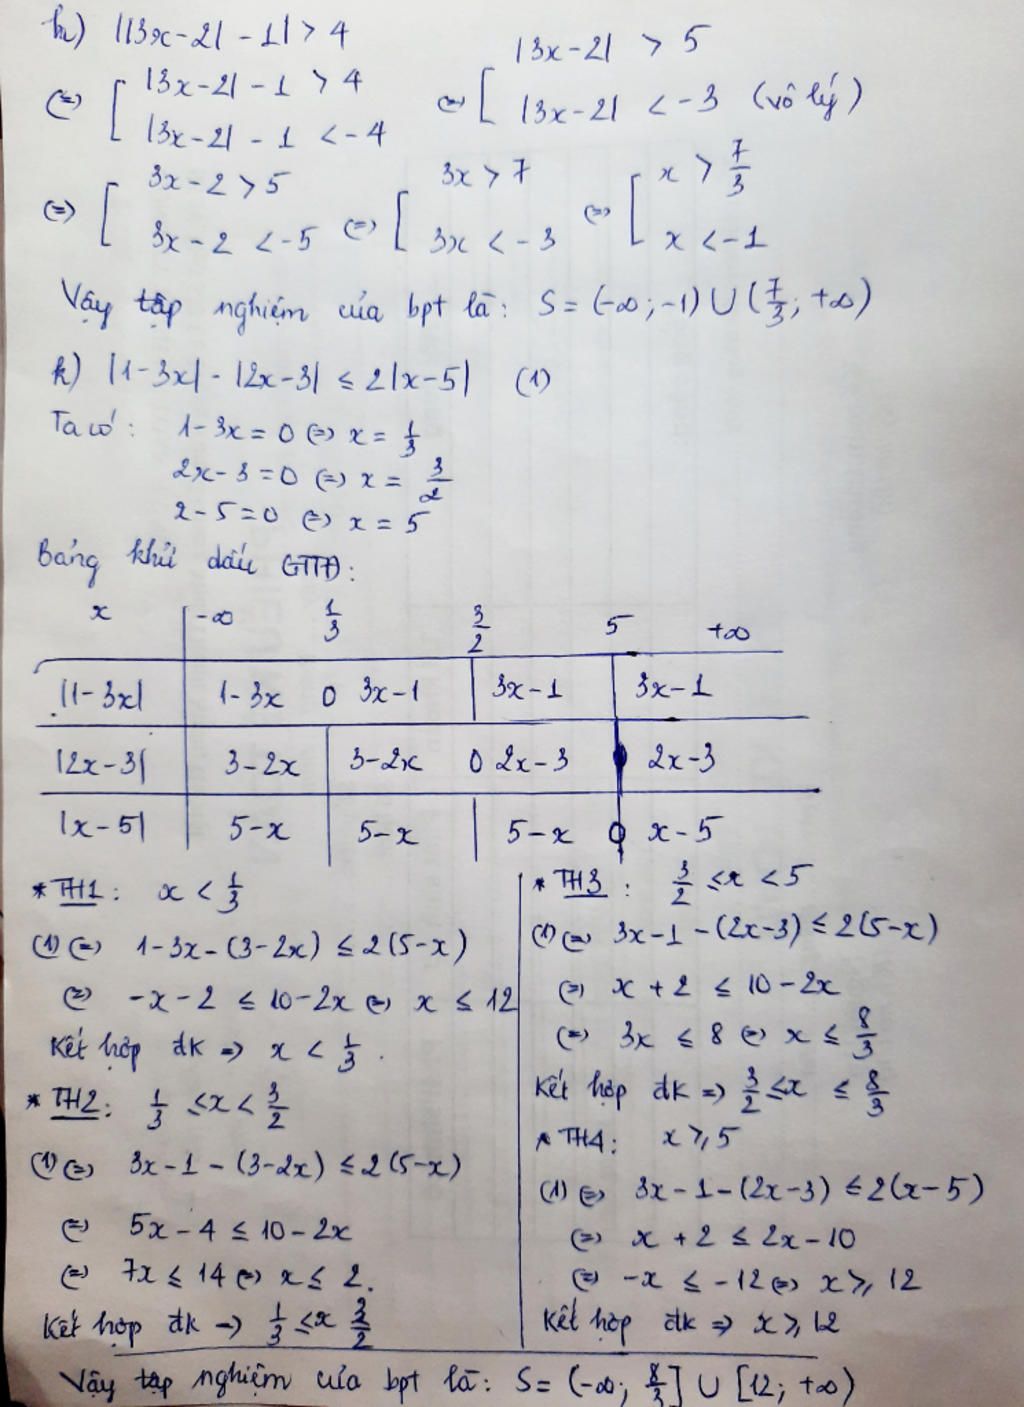 h) ||3x-2| - 1| > 4
(=) [ |3x-2| - 1 > 4 (=) [ |3x-2| > 5
|3x-2| - 1 < -4 |3x-2| < -3 (vô lý)
(=) [ 3x-2 > 5 (=) [ 3x > 7 (=) [ x > 7/3
3x-2 < -5 3x < -3 x < -1
Vậy tập nghiệm của bpt là: S = (-∞; -1) ∪ (7/3; +∞)
k) |1-3x| - |2x-3| ≤ 2|x-5| (1)
Ta có: 1-3x = 0 (=) x = 1/3
2x-3 = 0 (=) x = 3/2
2-5=0 (=) x = 5
Bảng khử dấu GTTĐ:
x -∞ 1/3 3/2 5 +∞
|1-3x| 1-3x 0 3x-1 | 3x-1 | 3x-1
|2x-3| 3-2x | 3-2x 0 2x-3 | 2x-3
|x-5| 5-x | 5-x | 5-x 0 x-5
* TH1: x < 1/3
(1) (=) 1-3x-(3-2x) ≤ 2(5-x)
(=) -x-2 ≤ 10-2x (=) x ≤ 12
Kết hợp đk => x < 1/3.
* TH2: 1/3 ≤ x < 3/2
(1) (=) 3x-1-(3-2x) ≤ 2(5-x)
(=) 5x-4 ≤ 10-2x
(=) 7x ≤ 14 (=) x ≤ 2.
Kết hợp đk => 1/3 ≤ x 3/2
* TH3: 3/2 ≤ x < 5
(1) (=) 3x-1-(2x-3) ≤ 2(5-x)
(=) x+2 ≤ 10-2x
(=) 3x ≤ 8 (=) x ≤ 8/3
Kết hợp đk => 3/2 ≤ x ≤ 8/3
* TH4: x ≥ 5
(1) (=) 3x-1-(2x-3) ≤ 2(x-5)
(=) x+2 ≤ 2x-10
(=) -x ≤ -12 (=) x ≥ 12
Kết hợp đk => x ≥ 12
Vậy tập nghiệm của bpt là: S = (-∞; 8/3] ∪ [12; +∞)